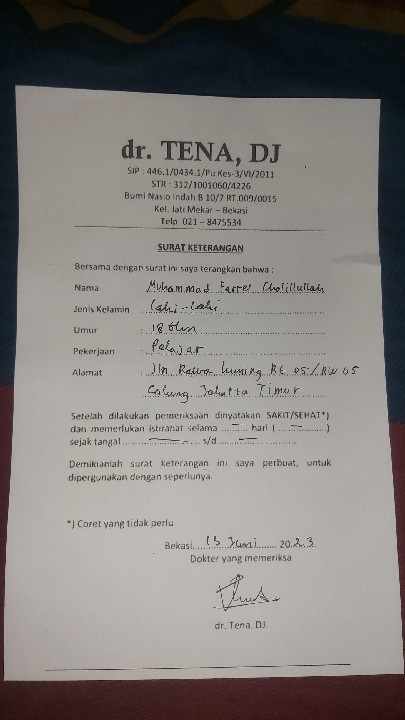 dr. TENA, DJ
SIP : 446.1/0434.1/Pu Kes-3/VI/2011
STR : 312/1001060/4226
Bumi Nasio Indah B 10/7 RT.009/0015
Kel. Jati Mekar – Bekasi
Telp 021 – 8475534
SURAT KETERANGAN
Bersama dengan surat ini saya terangkan bahwa :
Nama : Muhammad Farrel Cholillullah
Jenis Kelamin : Laki-Laki
Umur : 18 thn
Pekerjaan : Pelajar
Alamat : Jln Rawa Kuning Rt 05/RW 05
Cakung Jakarta Timur
Setelah dilakukan pemeriksaan dinyatakan SAKIT/SEHAT*)
dan memerlukan istirahat selama ... – ... hari (... – ...)
sejak tangal ... – ... s/d ... – ...
Demikianlah surat keterangan ini saya perbuat, untuk
dipergunakan dengan seperlunya.
*) Coret yang tidak perlu
Bekasi, 13 Juni 2023
Dokter yang memeriksa
dr. Tena, DJ.